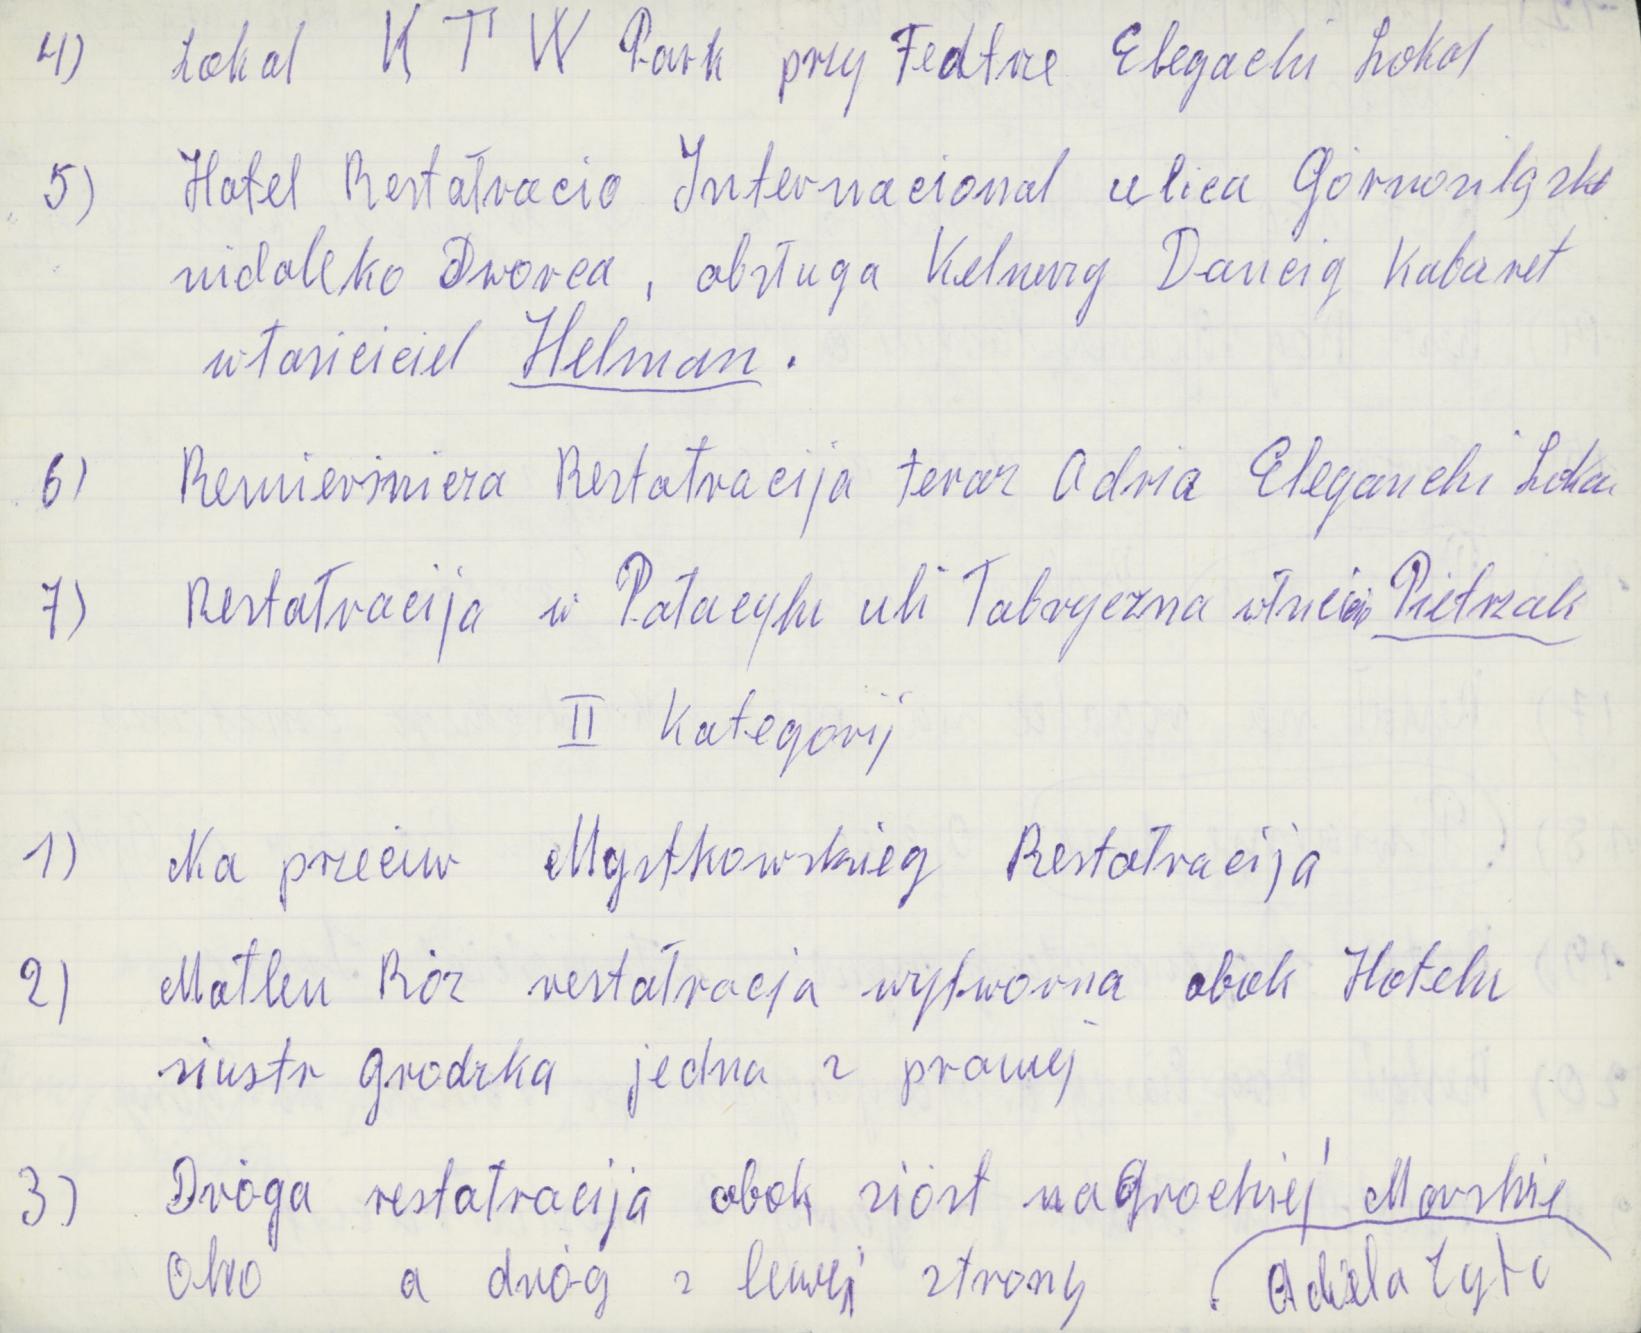 4) Lokal K T W Park przy Tedtrze Elegachi Lokal
5) Hotel Restatracio Internacional ulica Górnośląska
nidaleko Dworca, obstuga Kelnerzy Dancig Kabaret
wtaściciel Helman.
6) Remieśnicza Restatracija teraz Adria Eleganchi Lokal
7) Restatracija w Patacyku uli Tabryczna Pietrzak
II Kategorij
1) Na przeciw Mystkowskieg Restatracija
2) Matlen Róz restatracja wytworna obok Hotelu
siustr Grodzka jedna z prawej
3) Dróga restatracija obok sióst na Grockiej Morskie
Oko a dróg z lewej strony (Adela Zyto